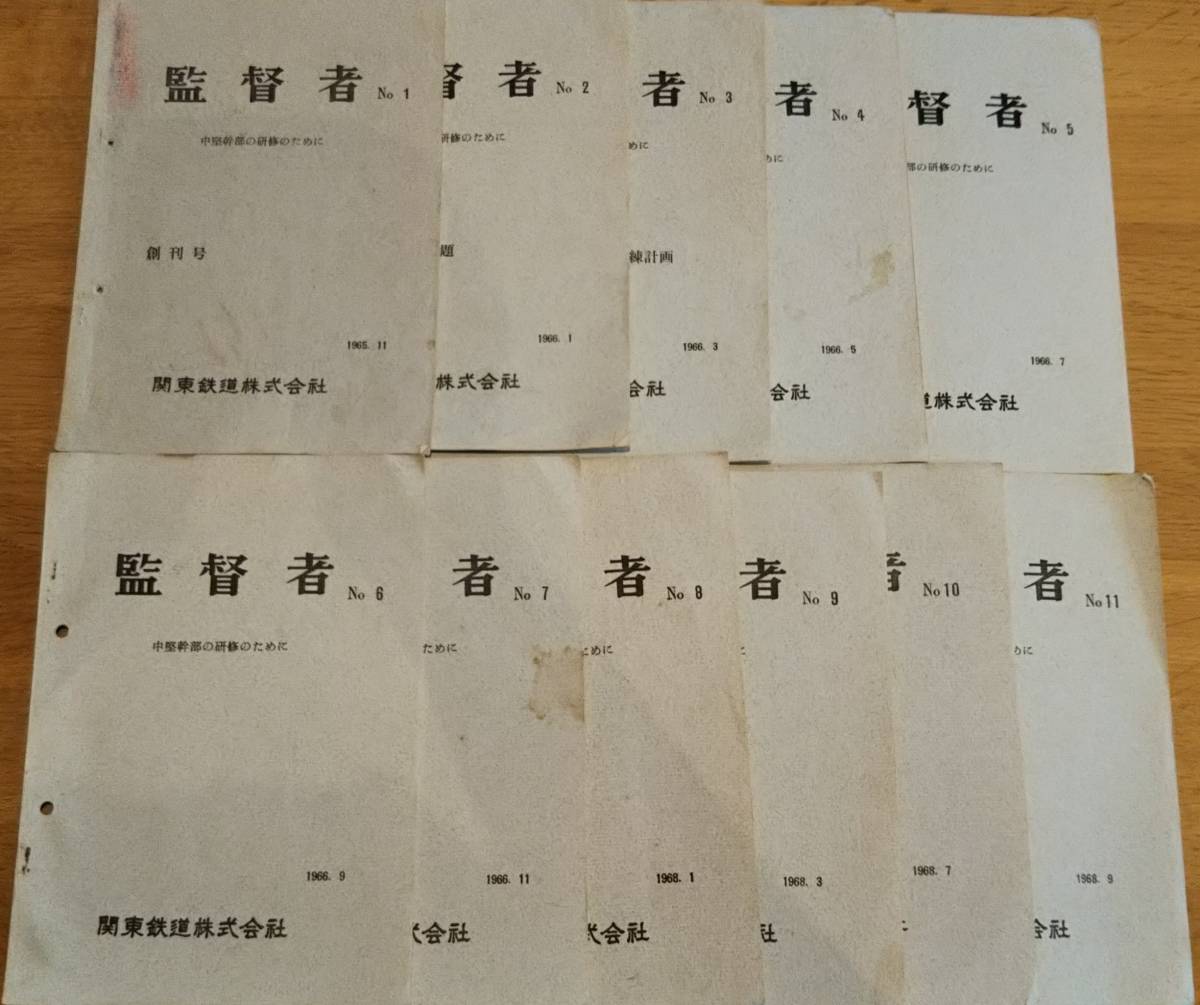 監督者 No 1
中堅幹部の研修のために
創刊号
1965. 11
関東鉄道株式会社
督者 No 2
研修のために
題
1966. 1
株式会社
者 No 3
めに
練計画
1966. 3
会社
者 No 4
めに
1966. 5
会社
督者 No 5
部の研修のために
1966. 7
道株式会社
監督者 No 6
中堅幹部の研修のために
1966. 9
関東鉄道株式会社
者 No 7
ために
1966. 11
式会社
者 No 8
ために
1968. 1
式会社
者 No 9
に
1968. 3
社
者 No 10
1968. 7
者 No 11
めに
1968. 9
会社